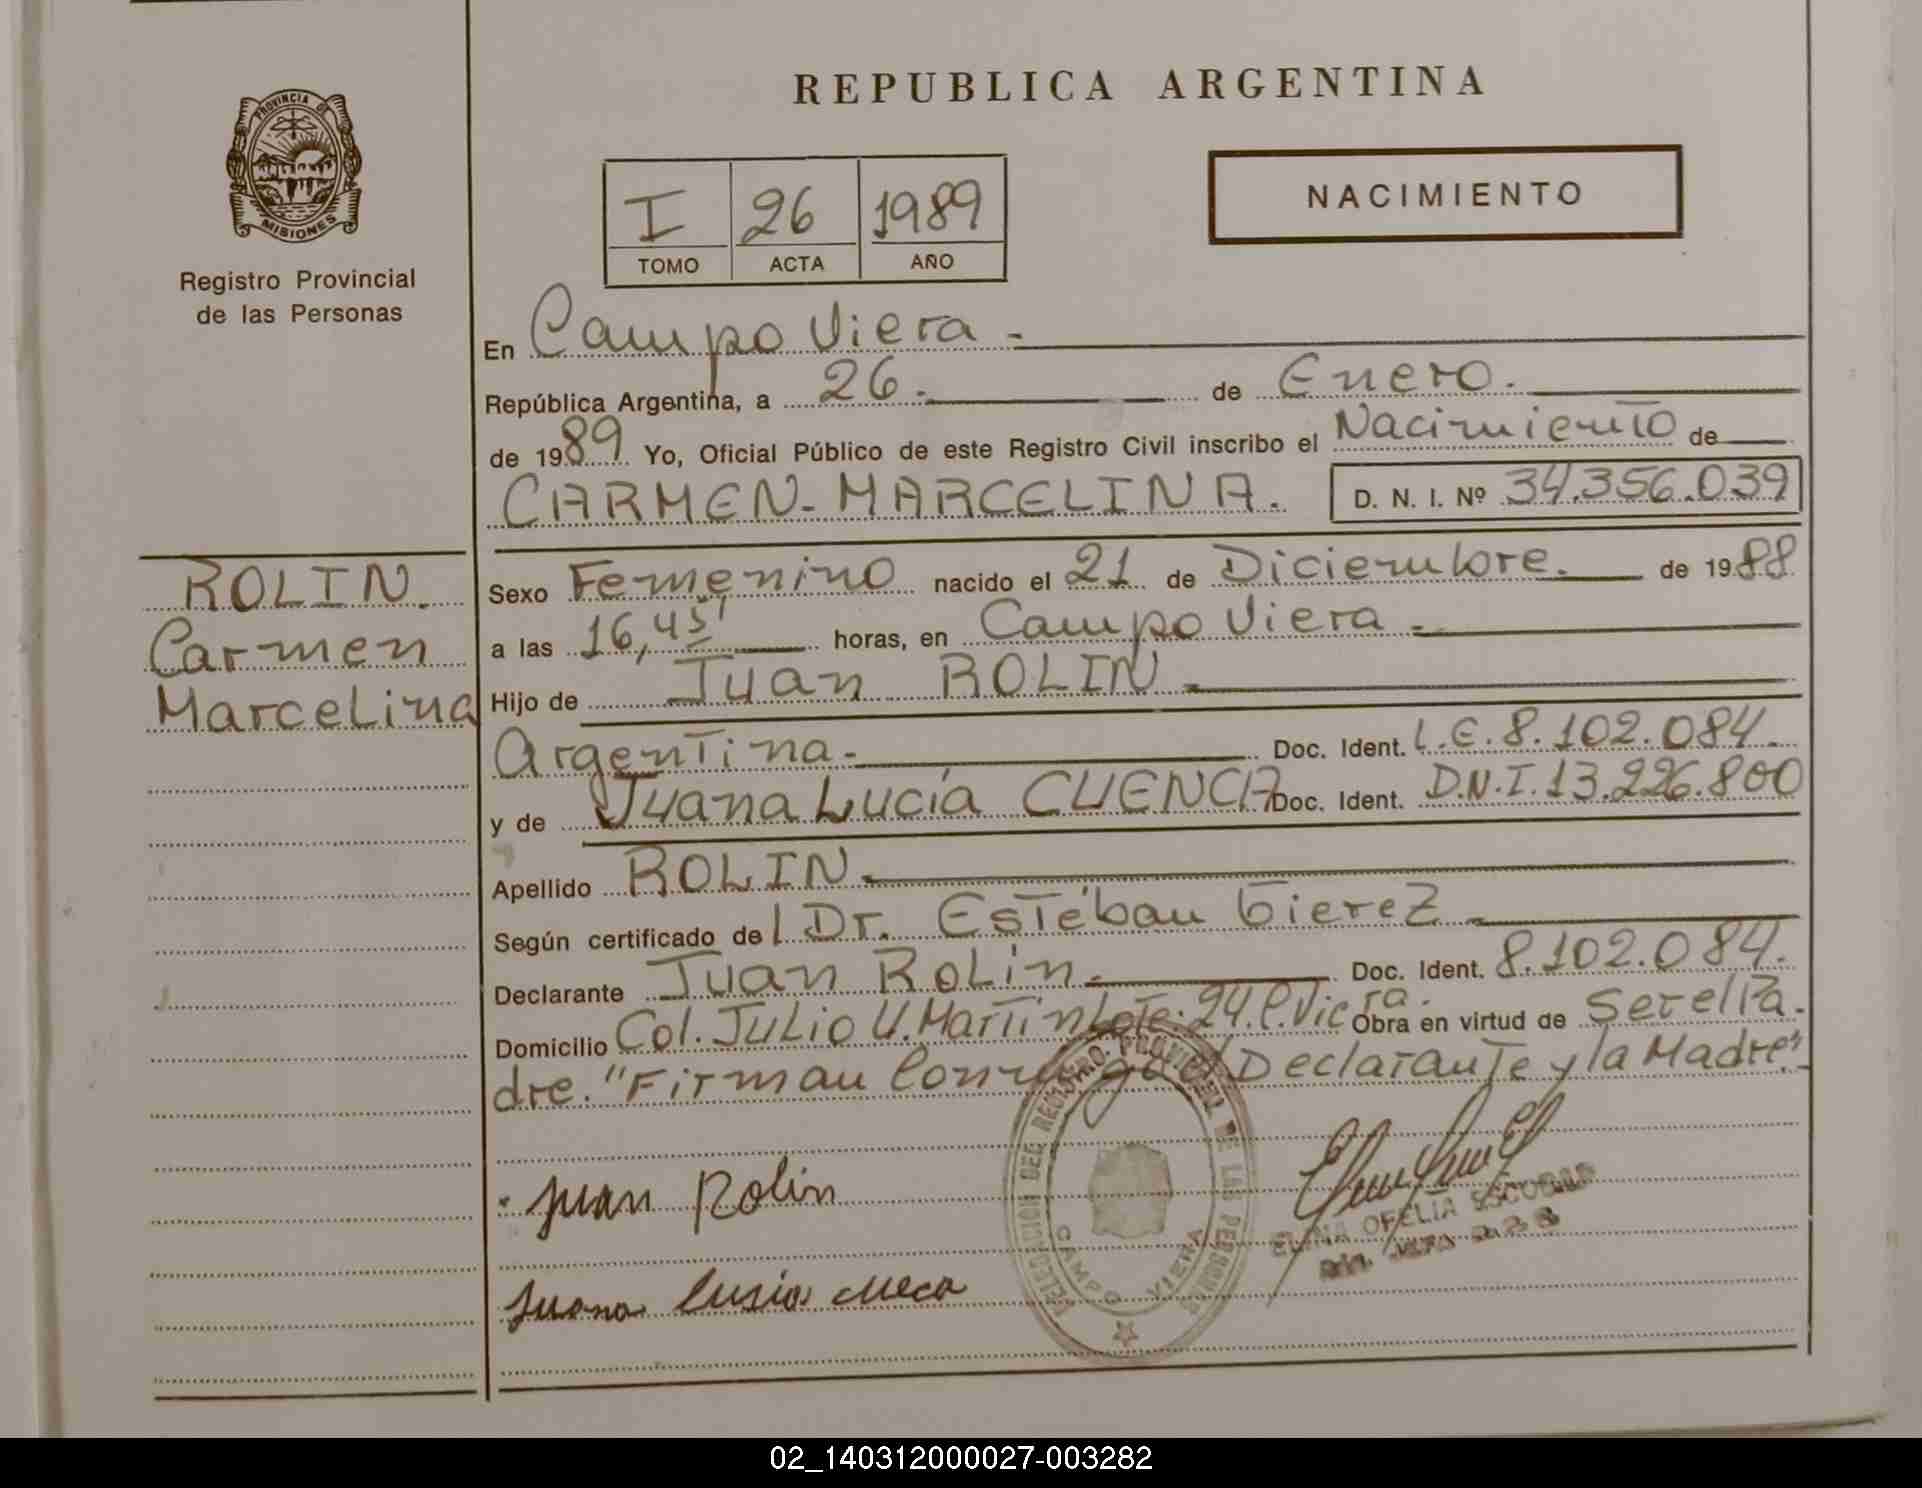 REPUBLICA ARGENTINA
PROVINCIA DE
MISIONES
Registro Provincial
de las Personas
I 26 1989
TOMO ACTA AÑO
NACIMIENTO
En Campo Viera.-
República Argentina, a 26.- de Enero.
de 1989 Yo, Oficial Público de este Registro Civil inscribo el Nacimiento de
CARMEN-MARCELINA. D. N. I. Nº 34.356.039
ROLIN.
Carmen
Marcelina
Sexo Femenino nacido el 21 de Diciembre. de 1988
a las 16,45' horas, en Campo Viera.-
Hijo de Juan ROLIN.-
Argentina.- Doc. Ident. L.E.8.102.084.
y de Juana Lucía CUENCA Doc. Ident. D.N.I.13.226.800
Apellido ROLIN.-
Según certificado del Dr. Estéban Gierez.-
Declarante Juan Rolin.- Doc. Ident. 8.102.084.
Domicilio Col. Julio U. Martin Lote.24.C.Viera. Obra en virtud de Ser el Pa
dre. "Firman Conmigo el Declarante y la Madre"
Juan Rolin
Juana Lusia cueca
DELEGACION DEL REGISTRO PROVINCIAL DE LAS PERSONAS
CAMPO VIERA
OFELIA ESCOBAR